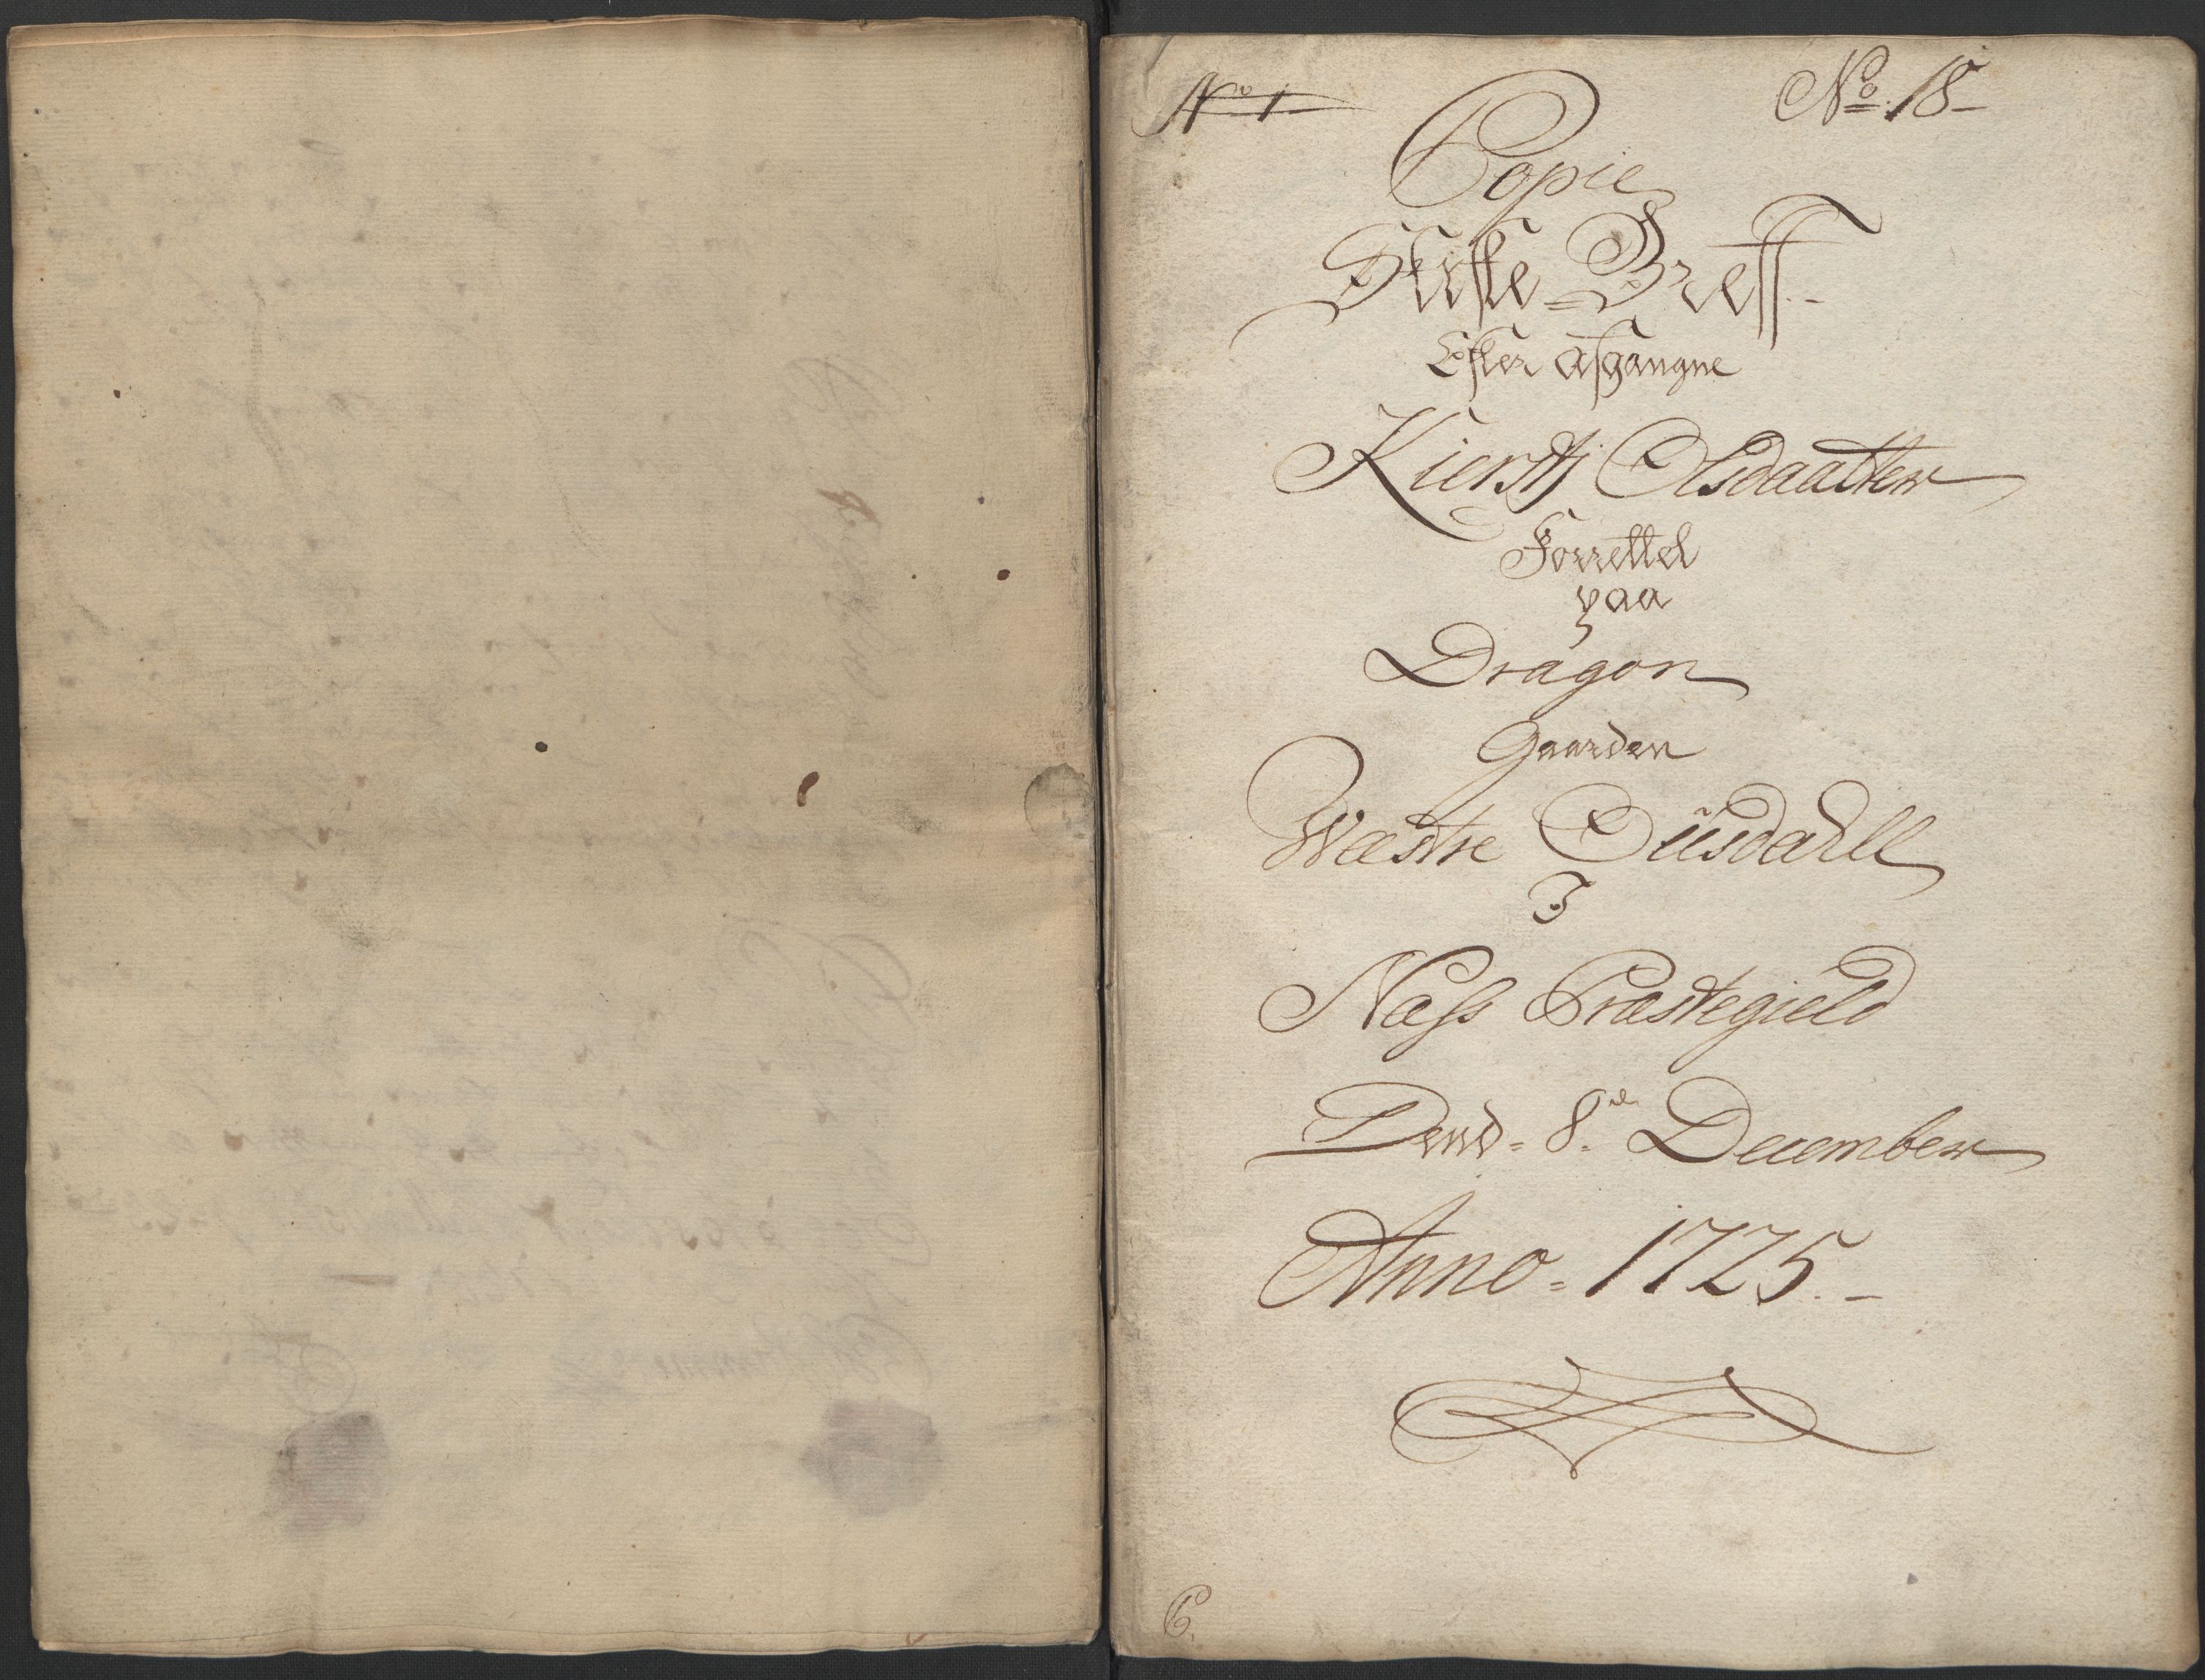 No 1
No. 18-
Copie
Skifte=Breff.-
Efter afgangne
Kierstj Olsdaatter
Forrettet
paa
Dragon
Gaarden
Wæstre
I
Næss Præstegield
Dend=8de December
Anno=1725.-
C.